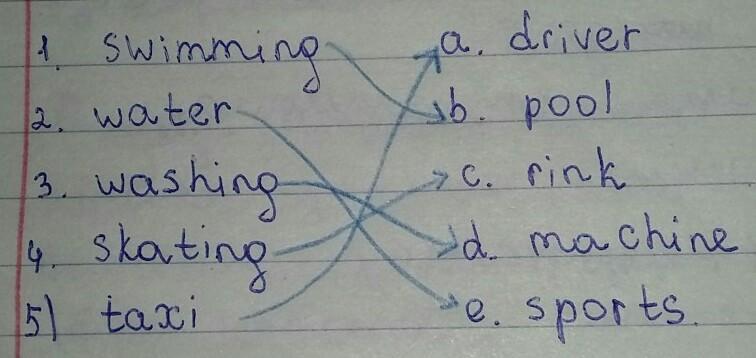 1. swimming a. driver
2. water b. pool
3. washing c. rink
4. skating d. machine
5) taxi e. sports.